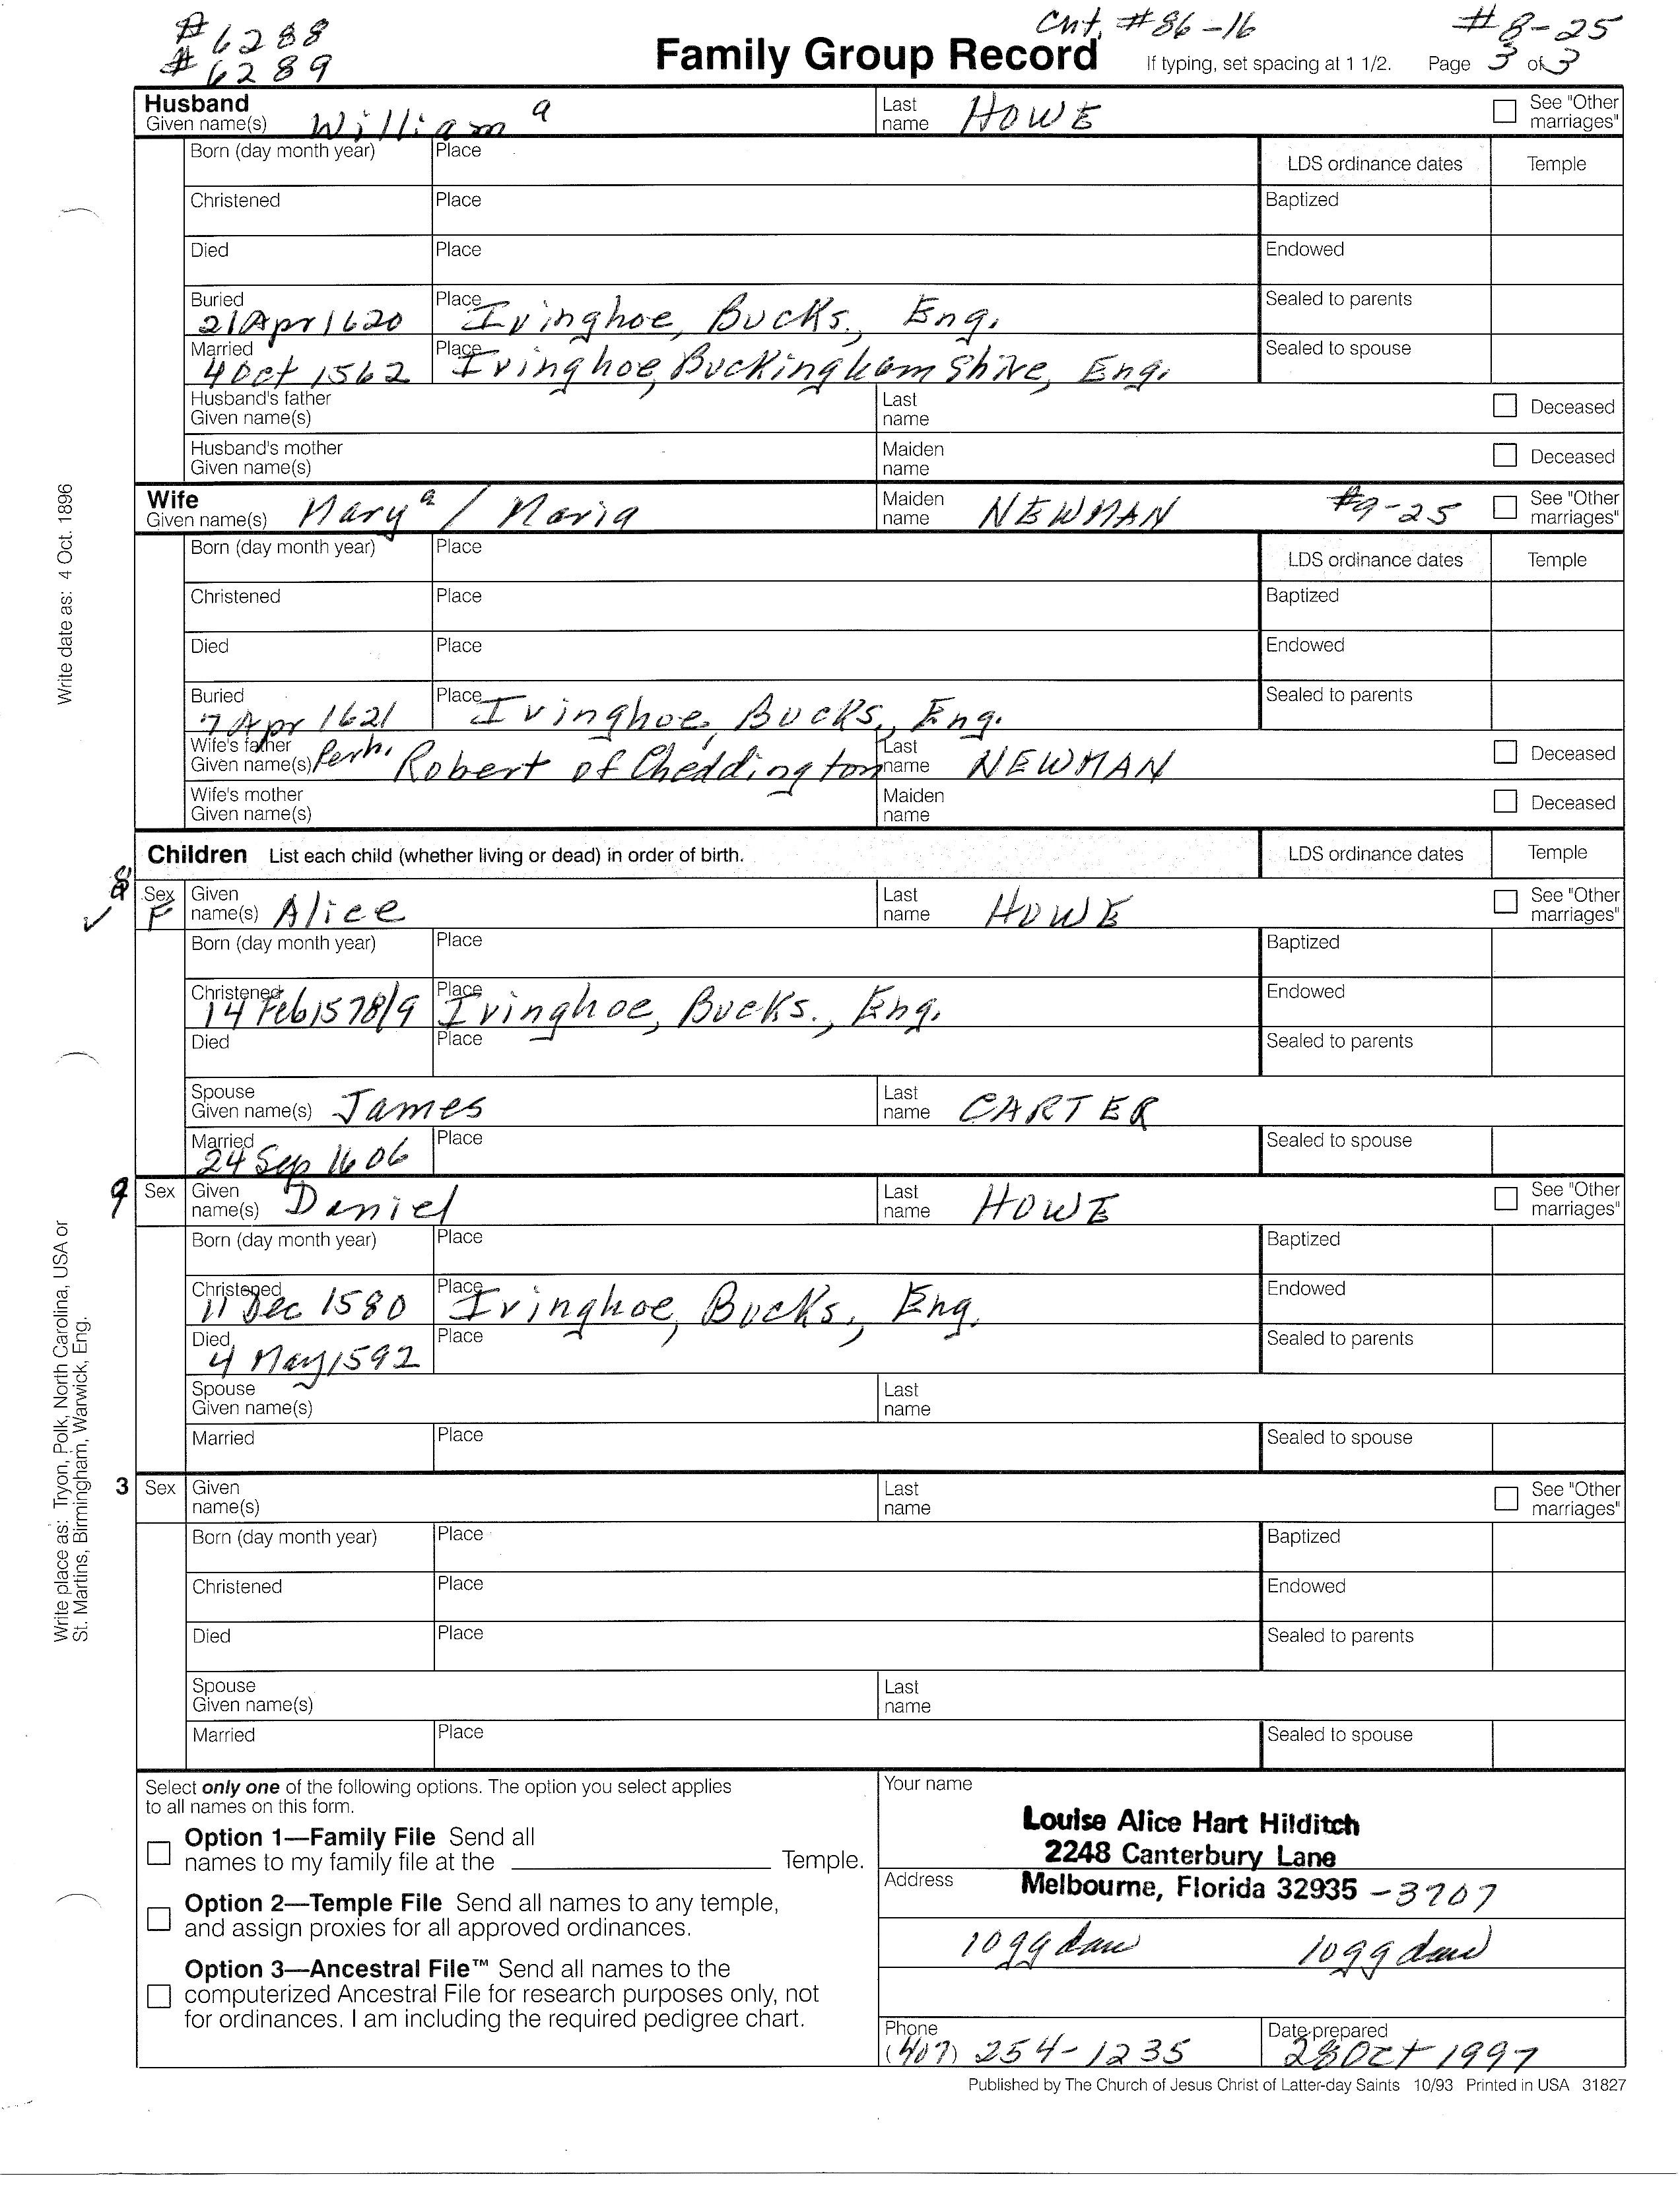 #6288
#6289
Cht. #86-16
#8-25
Family Group Record
If typing, set spacing at 1 1/2.
Page 3 of 3
Husband
Given name(s) William a
Last name HOWE
See "Other marriages"
Born (day month year)
Place
LDS ordinance dates
Temple
Christened
Place
Baptized
Died
Place
Endowed
Buried 21 Apr 1620
Place Ivinghoe, Bucks., Eng.
Sealed to parents
Married 4 Oct 1562
Place Ivinghoe, Buckinghamshire, Eng.
Sealed to spouse
Husband's father Given name(s)
Last name
Deceased
Husband's mother Given name(s)
Maiden name
Deceased
Wife
Given name(s) Mary a / Maria
Maiden name NEWMAN #9-25
See "Other marriages"
Born (day month year)
Place
LDS ordinance dates
Temple
Christened
Place
Baptized
Died
Place
Endowed
Buried 7 Apr 1621
Place Ivinghoe, Bucks., Eng.
Sealed to parents
Wife's father Given name(s) Perh. Robert of Cheddington
Last name NEWMAN
Deceased
Wife's mother Given name(s)
Maiden name
Deceased
Children List each child (whether living or dead) in order of birth.
LDS ordinance dates
Temple
8 Sex F
Given name(s) Alice
Last name HOWE
See "Other marriages"
Born (day month year)
Place
Baptized
Christened 14 Feb 1578/9
Place Ivinghoe, Bucks., Eng.
Endowed
Died
Place
Sealed to parents
Spouse Given name(s) James
Last name CARTER
Married 24 Sep 1606
Place
Sealed to spouse
9 Sex
Given name(s) Daniel
Last name HOWE
See "Other marriages"
Born (day month year)
Place
Baptized
Christened 11 Dec 1580
Place Ivinghoe, Bucks., Eng.
Endowed
Died 4 May 1592
Place
Sealed to parents
Spouse Given name(s)
Last name
Married
Place
Sealed to spouse
3 Sex
Given name(s)
Last name
See "Other marriages"
Born (day month year)
Place
Baptized
Christened
Place
Endowed
Died
Place
Sealed to parents
Spouse Given name(s)
Last name
Married
Place
Sealed to spouse
Select only one of the following options. The option you select applies
to all names on this form.
Option 1—Family File Send all
names to my family file at the ____ Temple.
Option 2—Temple File Send all names to any temple,
and assign proxies for all approved ordinances.
Option 3—Ancestral File™ Send all names to the
computerized Ancestral File for research purposes only, not
for ordinances. I am including the required pedigree chart.
Your name
Louise Alice Hart Hilditch
2248 Canterbury Lane
Address
Melbourne, Florida 32935 -3707
10gg
10gg
Phone (407) 254-1235
Date prepared 28 Oct 1997
Published by The Church of Jesus Christ of Latter-day Saints 10/93 Printed in USA 31827
Write date as: 4 Oct. 1896
Write place as: Tryon, Polk, North Carolina, USA or
St. Martins, Birmingham, Warwick, Eng.